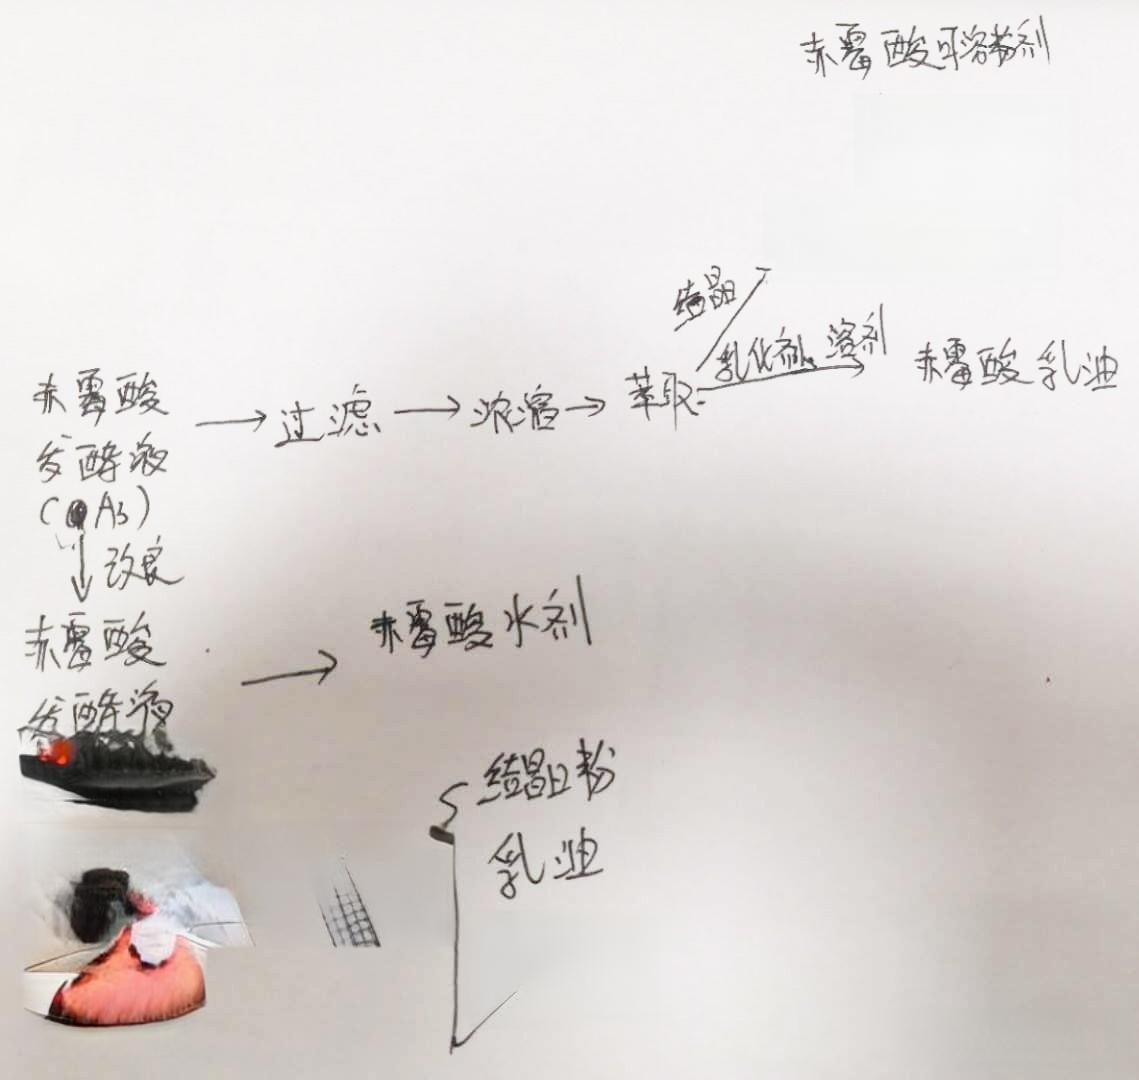 赤霉酸可溶粉剂
结晶
乳化剂、溶剂
赤霉酸乳油
赤霉酸
发酵液
(A3)
→过滤→浓缩→萃取
↓改良
赤霉酸
发酵液
→赤霉酸水剂
结晶粉
乳油